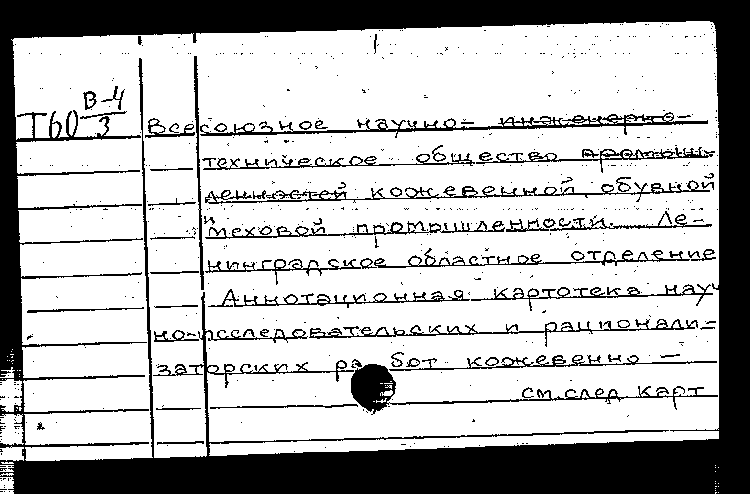 Т60 В-4/3
Всесоюзное научно- инженерно-
техническое общество промыш-
ленностей кожевенной, обувной
и меховой промышленности. Ле-
нинградское областное отделение
Аннотационная картотека науч
но-исследовательских и рационали-
заторских работ кожевенно —
см. след карт